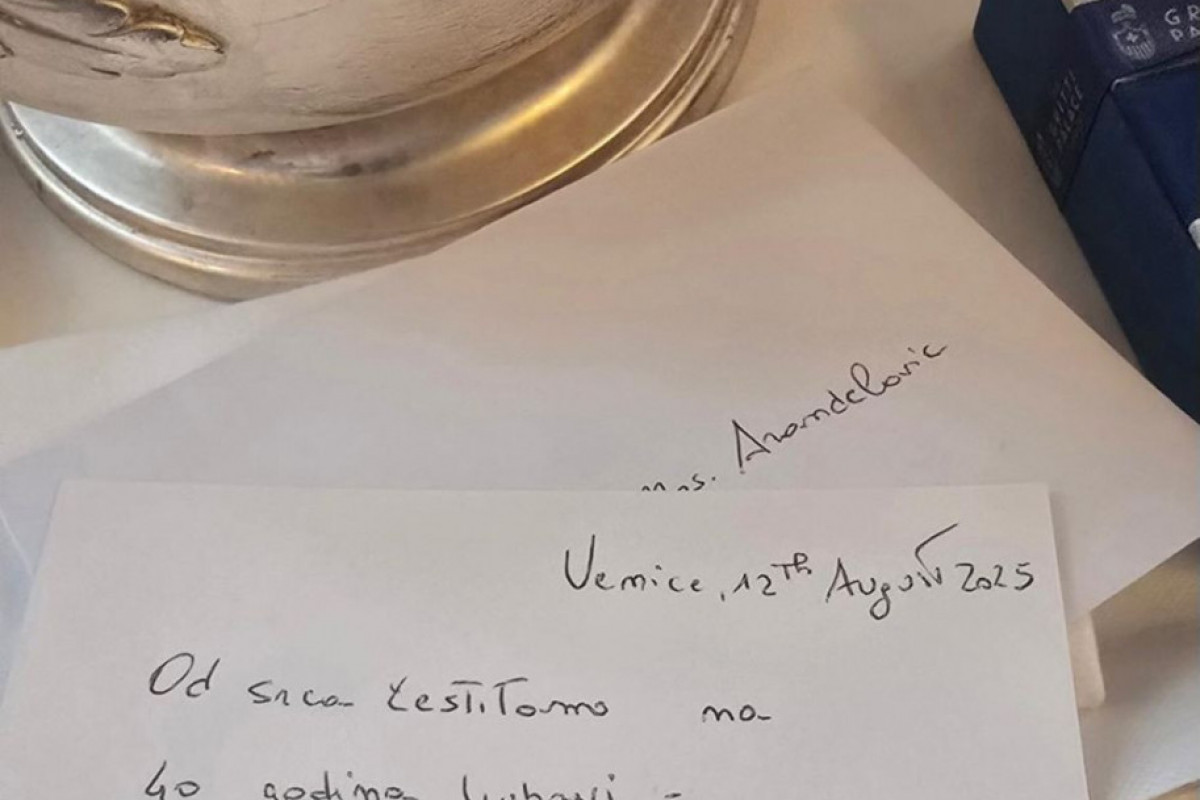 GR
PA
Mrs. Arandelovic
Venice, 12Th August 2025
Od srca čestitamo na
40 godina ljubavi -